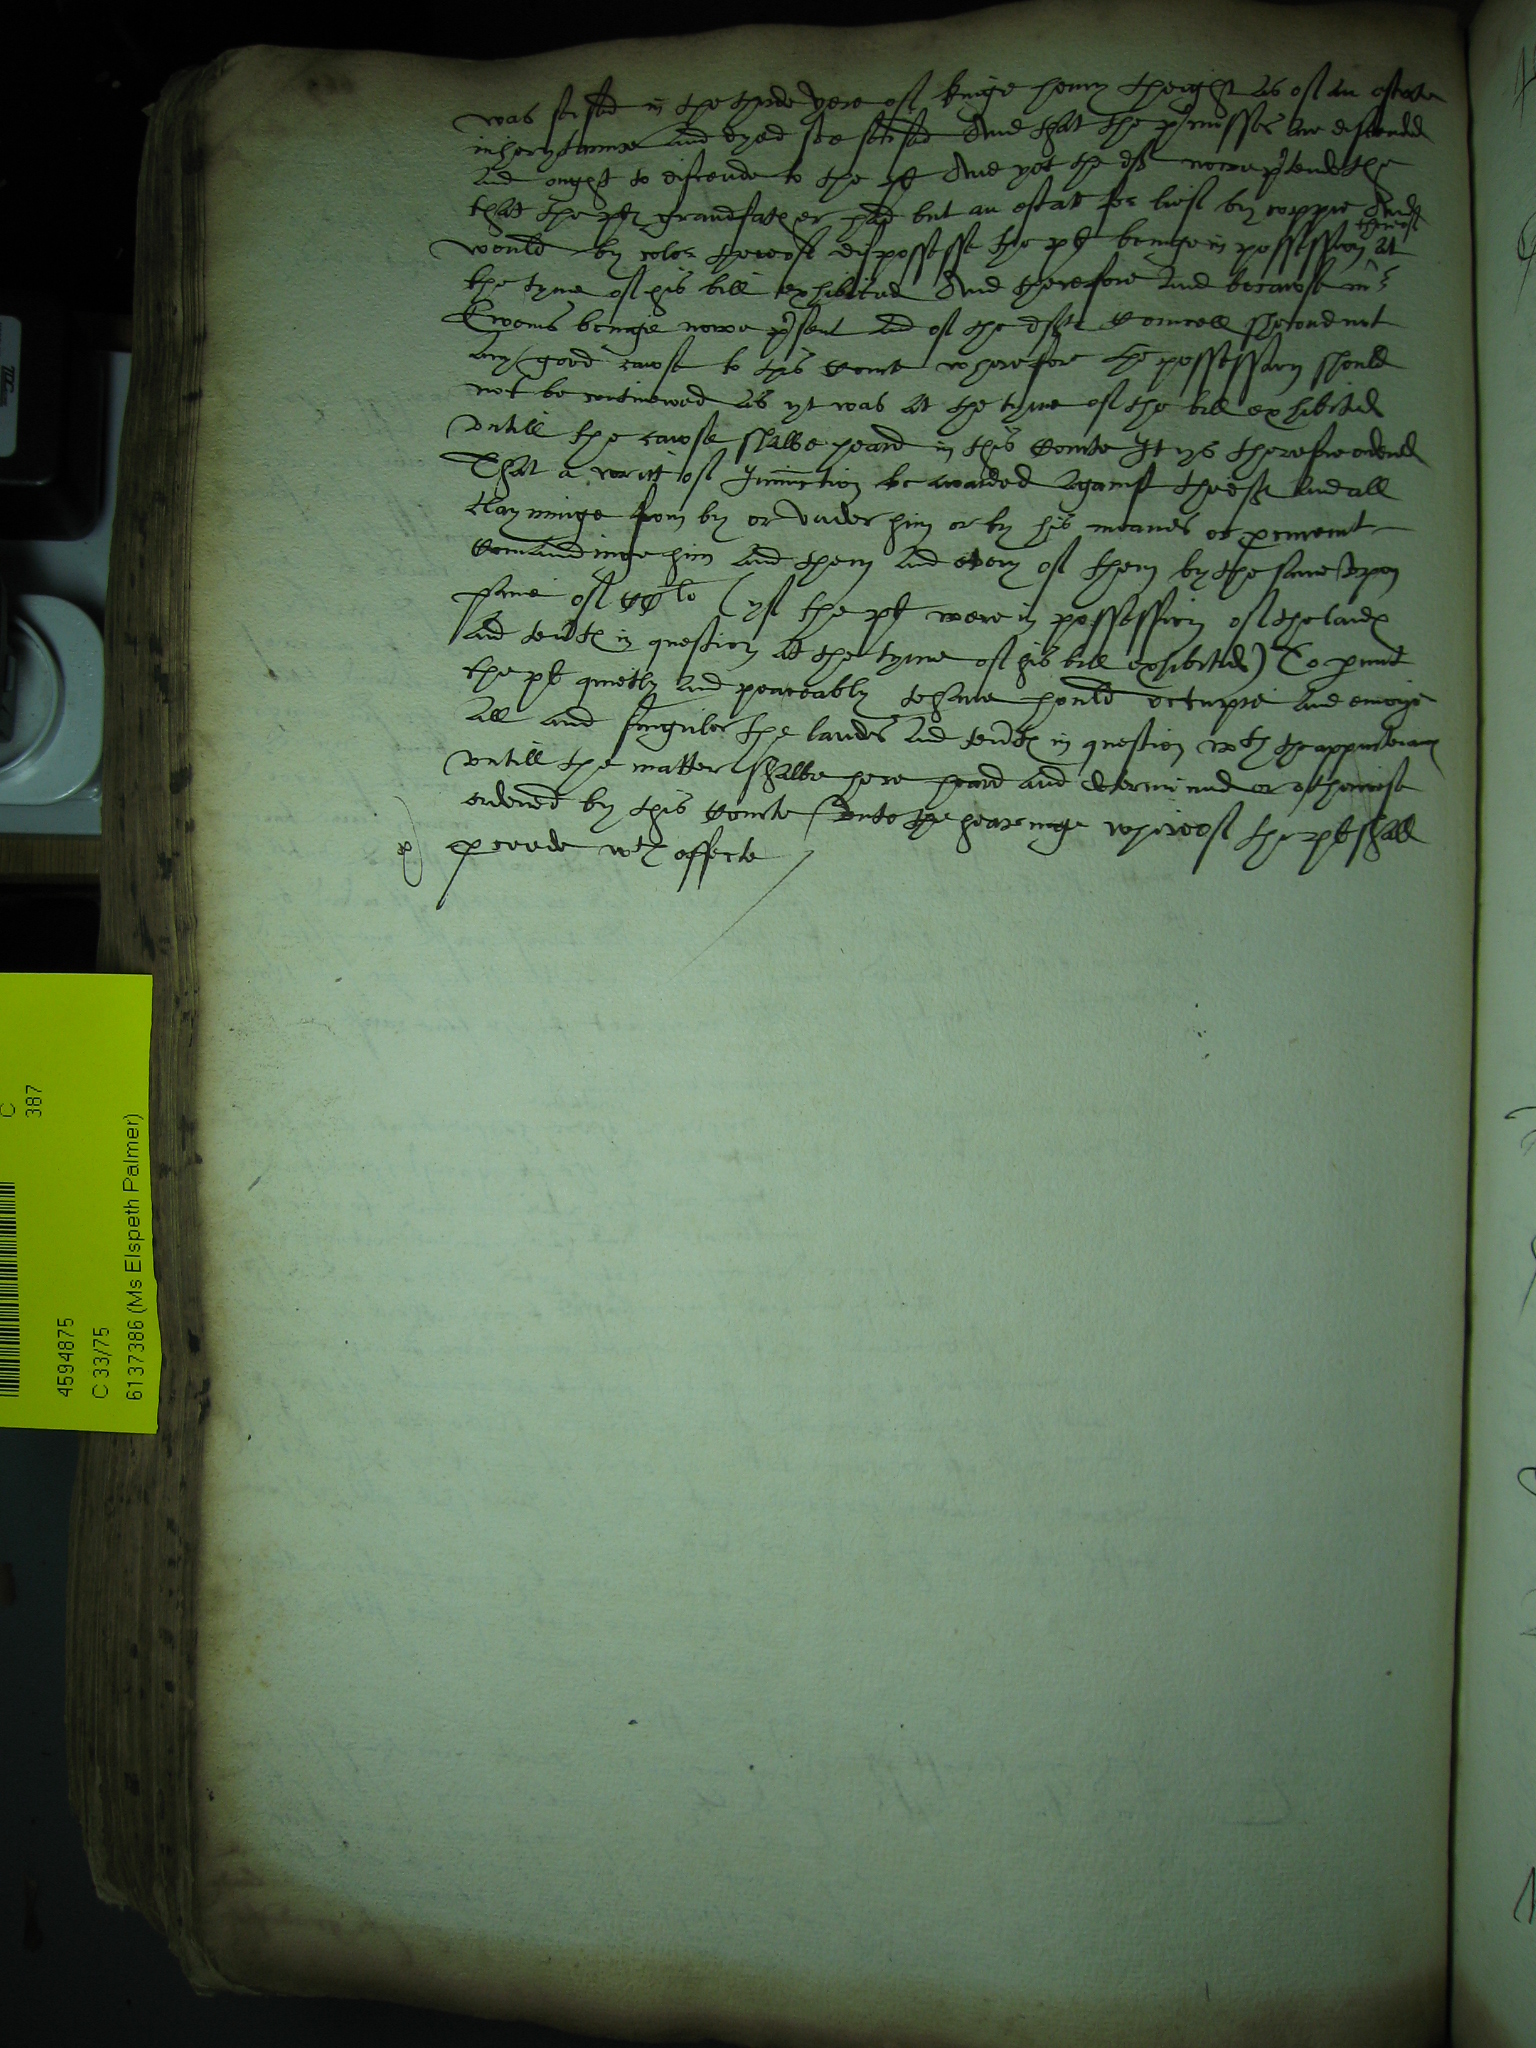 was seised in the thirde yere of kinge henry theight as of an estate
inherytaunce and dyed soe seised And that the p'misses are discended
and ought to discende to the pl And yet the deft nowe p'tendethe
that the pltes grandfather had but an estate for lief by coppie And
would by color thereof dispossesse the pl beinge in possession thereof at
the tyme of his bill exhibited And therefore and becawse mr
Ewens beinge nowe p'sent and of the deftes Councell shewed not
any good cawse to this Courte wherefore the possession should
not be contineued as yt was at the tyme of the bill exhibited
untill the cawse shalbe heard in this Courte It ys therefore ordered
That a writt of Iniunction be awarded against the deft and all
clayminge from by or under him or by his meanes or procurement
Comaundinge him and them and every of them by the same upon
paine of CCli (yf the pl were in possession of the landes
and tentes in question at the tyme of his bill exhibited) To permit
the pl quietly and peaceably to have hould occupie and enioye
all and singuler the landes and tentes in question wth thappurtenances
untill the matter shalbe here heard and determined or otherwise
ordered by this Courte Unto the hearinge whereof the pl shall
procede wth effecte
4594875
C 33/75
6137386 (Ms Elspeth Palmer)
C
387